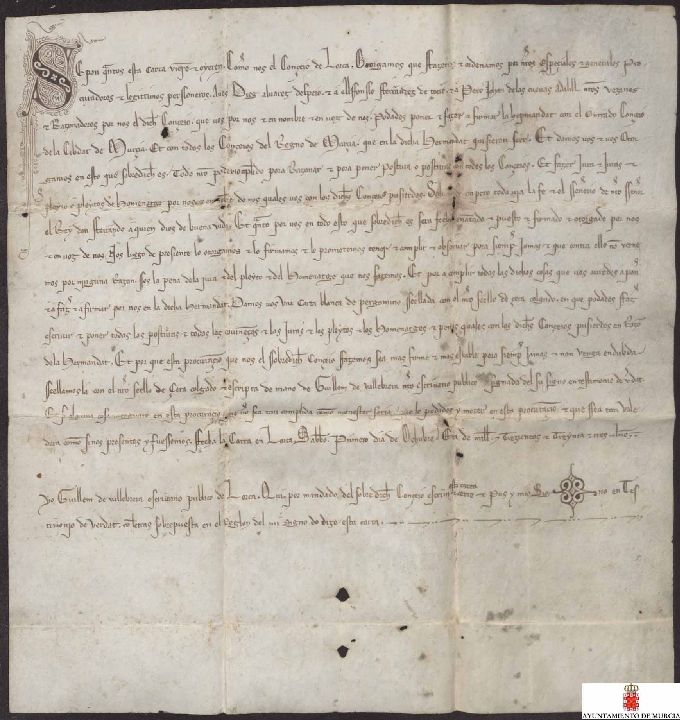 Sepan quantos esta carta vieren & oyeren. Como nos el Conçeio de Lorca. Otorgamos que fazemos & ordenamos por nros espeçiales & generales pro
curadores & legitimos personeros. a uos Diag aluarez & a Alfonsso Ferrandez & a Pero Johan delas cueuas Adalil. nros vezinos
& Razonadores por nos el dicho Conceio. que uos por nos & en nombre & en uoz de nos. Podades poner & fazer & firmar la hermandat con el Conceio
dela Çibdat de Murçia. Et con todos los Conçeios del Regno de Murçia. que en la dicha Hermandat quisieren seer. Et damos uos & uos otor
gamos en esto que sobredicho es. Todo nro poder conplido pora Razonar & pora poner postura o posturas con todos los Conçeios. Et fazer Jura & Juras &
pleyto & pleytos de Homenage por nos en los quales uos con los dichos Conçeios pusierdes. en pero toda uia la fe & el seruicio de nro sennor
el Rey don Ferrando a quien dios de buena uida. Et quanto por uos en todo esto que sobredicho es sera fecho & puesto & firmado & otorgado por nos
& en uoz de nos. Nos luego de presente lo otorgamos & lo firmamos & lo prometemos tener & conplir & obseruar pora siempre Jamas & que contra ello non verne
mos por ninguna Razon. Sos la pena dela Jura & del pleyto & del Homenage que nos fazemos. Et por a conplir todas las dichas cosas que uos auedes a poner
& a fazer & a firmar por nos en la dicha Hermandat. Damos uos vna Carta blanca de pergamino seellada con el nro seello de çera colgado. en que podades fazer
escriuir & poner todas las posturas & todas las & las Juras & los pleytos & los Homenages & penas quales con los dichos Conçeios pusierdes en Razon
dela Hermandat. Et por que esta procuraçion que nos el sobredicho Conçeio fazemos sea mas firme & mas estable pora siempre Jamas & non venga en dubda
Seellamos la con el nro seello de Çera colgado & escripta de mano de Guillem de vallebrera nro escriuano publico & signada del su signo en testimonio de verdat.
Et si alguna cosa en esta procuraçion que no sea tan conplida como menester seria que lo podades y meter en esta procuraçion & que sea tan vale
dera como si nos presentes y fuessemos. Fecha la Carta en Lorca. Sabbado Primero dia de Octubre Era de mill. & Trezientos & Treynta & tres annos.
Yo Guillem de vallebrera escriuano publico de Lorca. Qui por mandado del sobredicho Conçeio escriui esta carta & Pus y mio Sig no en Tes
timonjo de Verdat. con letras sobrepuesta en el Reglon del mi signo do dize esta carta.
AYUNTAMIENTO DE MURCIA